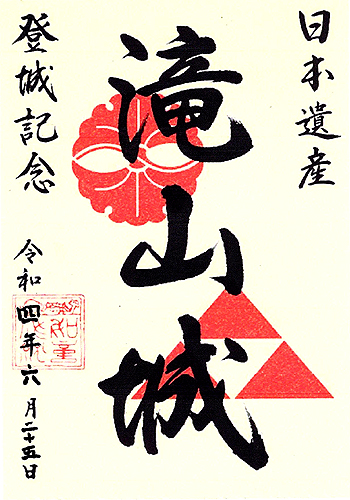 日本遺産
滝山城
登城記念
令和四年六月二十五日